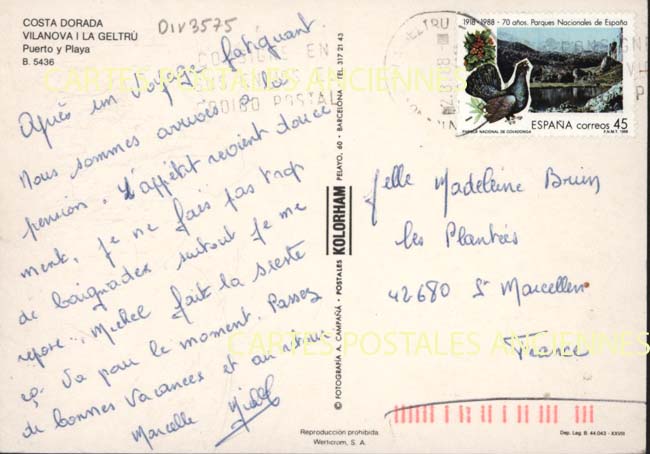 COSTA DORADA
VILANOVA I LA GELTRÚ
Puerto y Playa
B. 5436
DIV3575
Après un voyage fatiguant.
Nous sommes arrivés à la
pension. L'appétit revient douce
ment, je ne fais pas trop
de baignades surtout je me
repose. Michel fait la sieste
ça va pour le moment. Passez
de bonnes vacances et au
Marcelle Michel
CONSIGNE EN
CODIGO POSTAL
CARTES POSTALES ANCIENNES
CARTES POSTALES ANCIENNES
© FOTOGRAFÍA A. CAMPAÑA - POSTALES KOLORHAM PELAYO, 60 - BARCELONA - TEL. 317 21 43
Reproducción prohibida
Werticrom, S. A.
1918-1988 - 70 años. Parques Nacionales de España
PARQUE NACIONAL DE COVADONGA
ESPAÑA correos 45
F.N.M.T. 1988
Melle Madeleine Brun
les Plantées
42680 St Marcellin
France
Dep. Leg. B. 44.043 - XXVIII